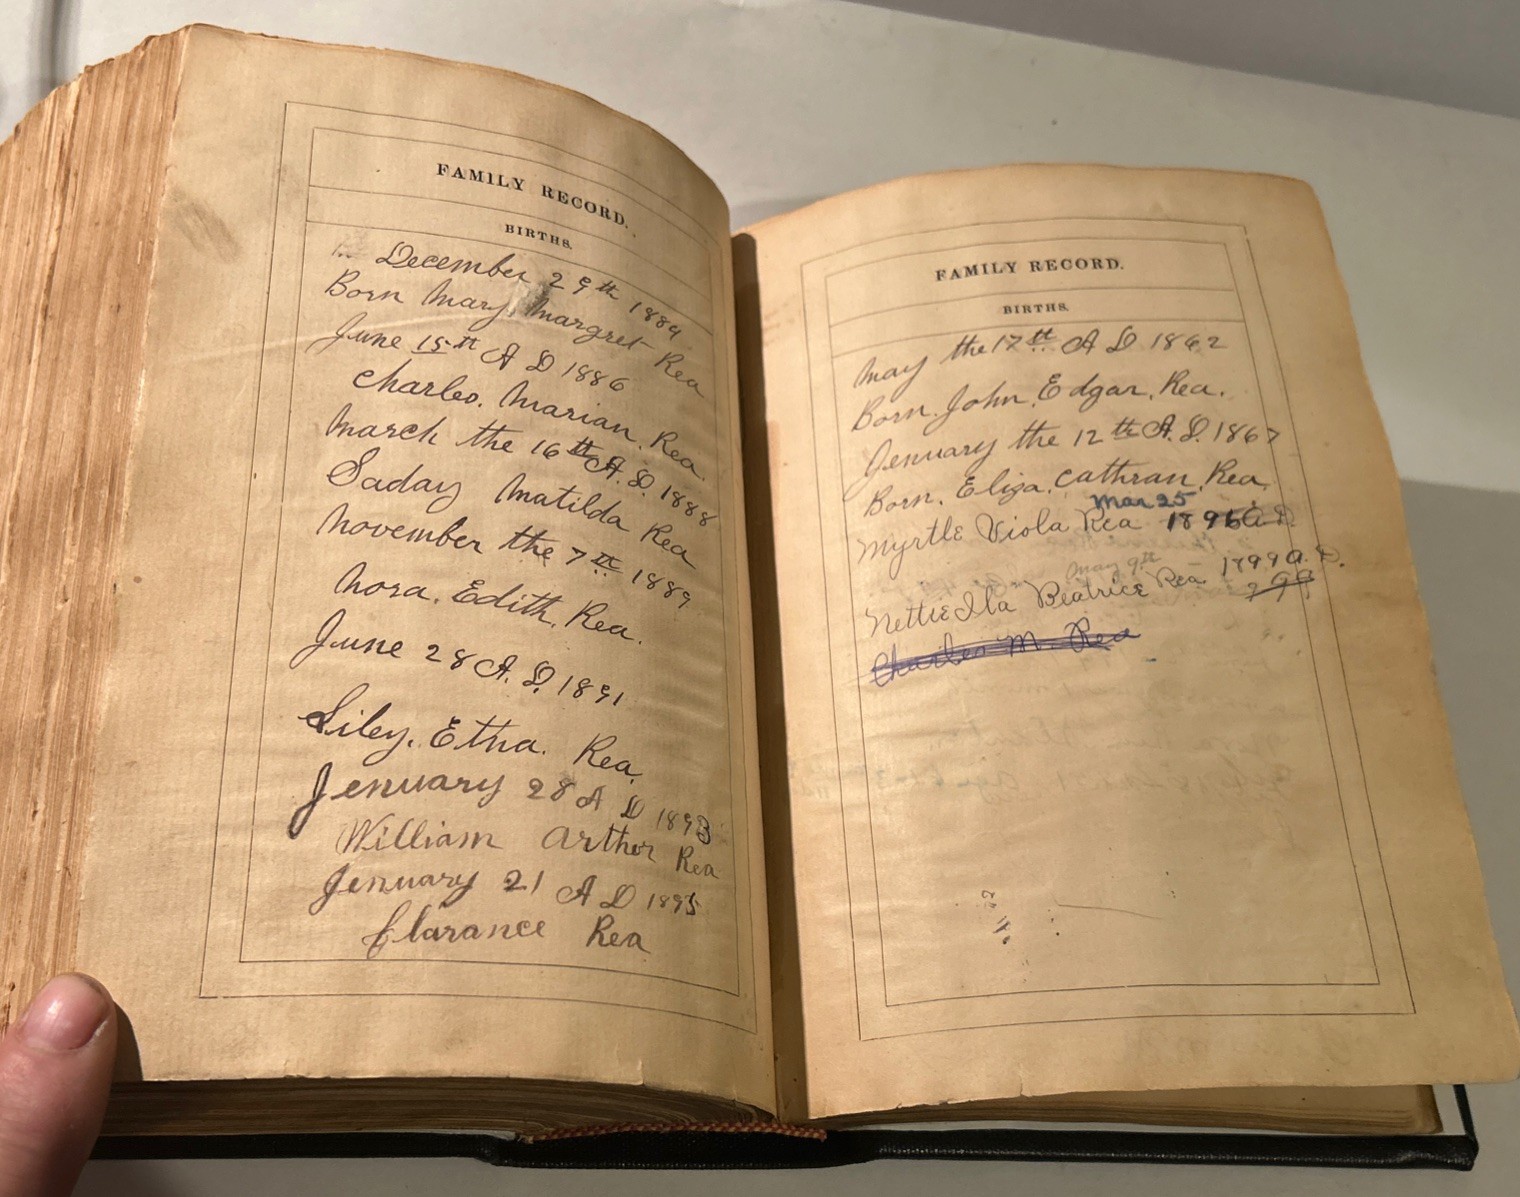 FAMILY RECORD.
BIRTHS.
December 29th 1884
Born Mary Margret Rea
June 15th A D 1886
Charles. Marian. Rea
March the 16th A. D. 1888
Saday Matilda Rea
November the 7th 1889
Nora. Edith. Rea.
June 28 A. D. 1891
Liley. Etha. Rea.
Jenuary 28 A D 1893
William Arther Rea
Jenuary 21 A D 1895
Clarance Rea
FAMILY RECORD.
BIRTHS.
May the 17th A D 1862
Born. John. Edgar. Rea.
Jenuary the 12th A. D. 1867
Born. Eliza. Cathran. Rea
Mar 25
Myrtle Viola Rea 1896 A. D
May 9th
Nettie Ila Beatrice Rea 1799 A. D.
Charles M. Rea